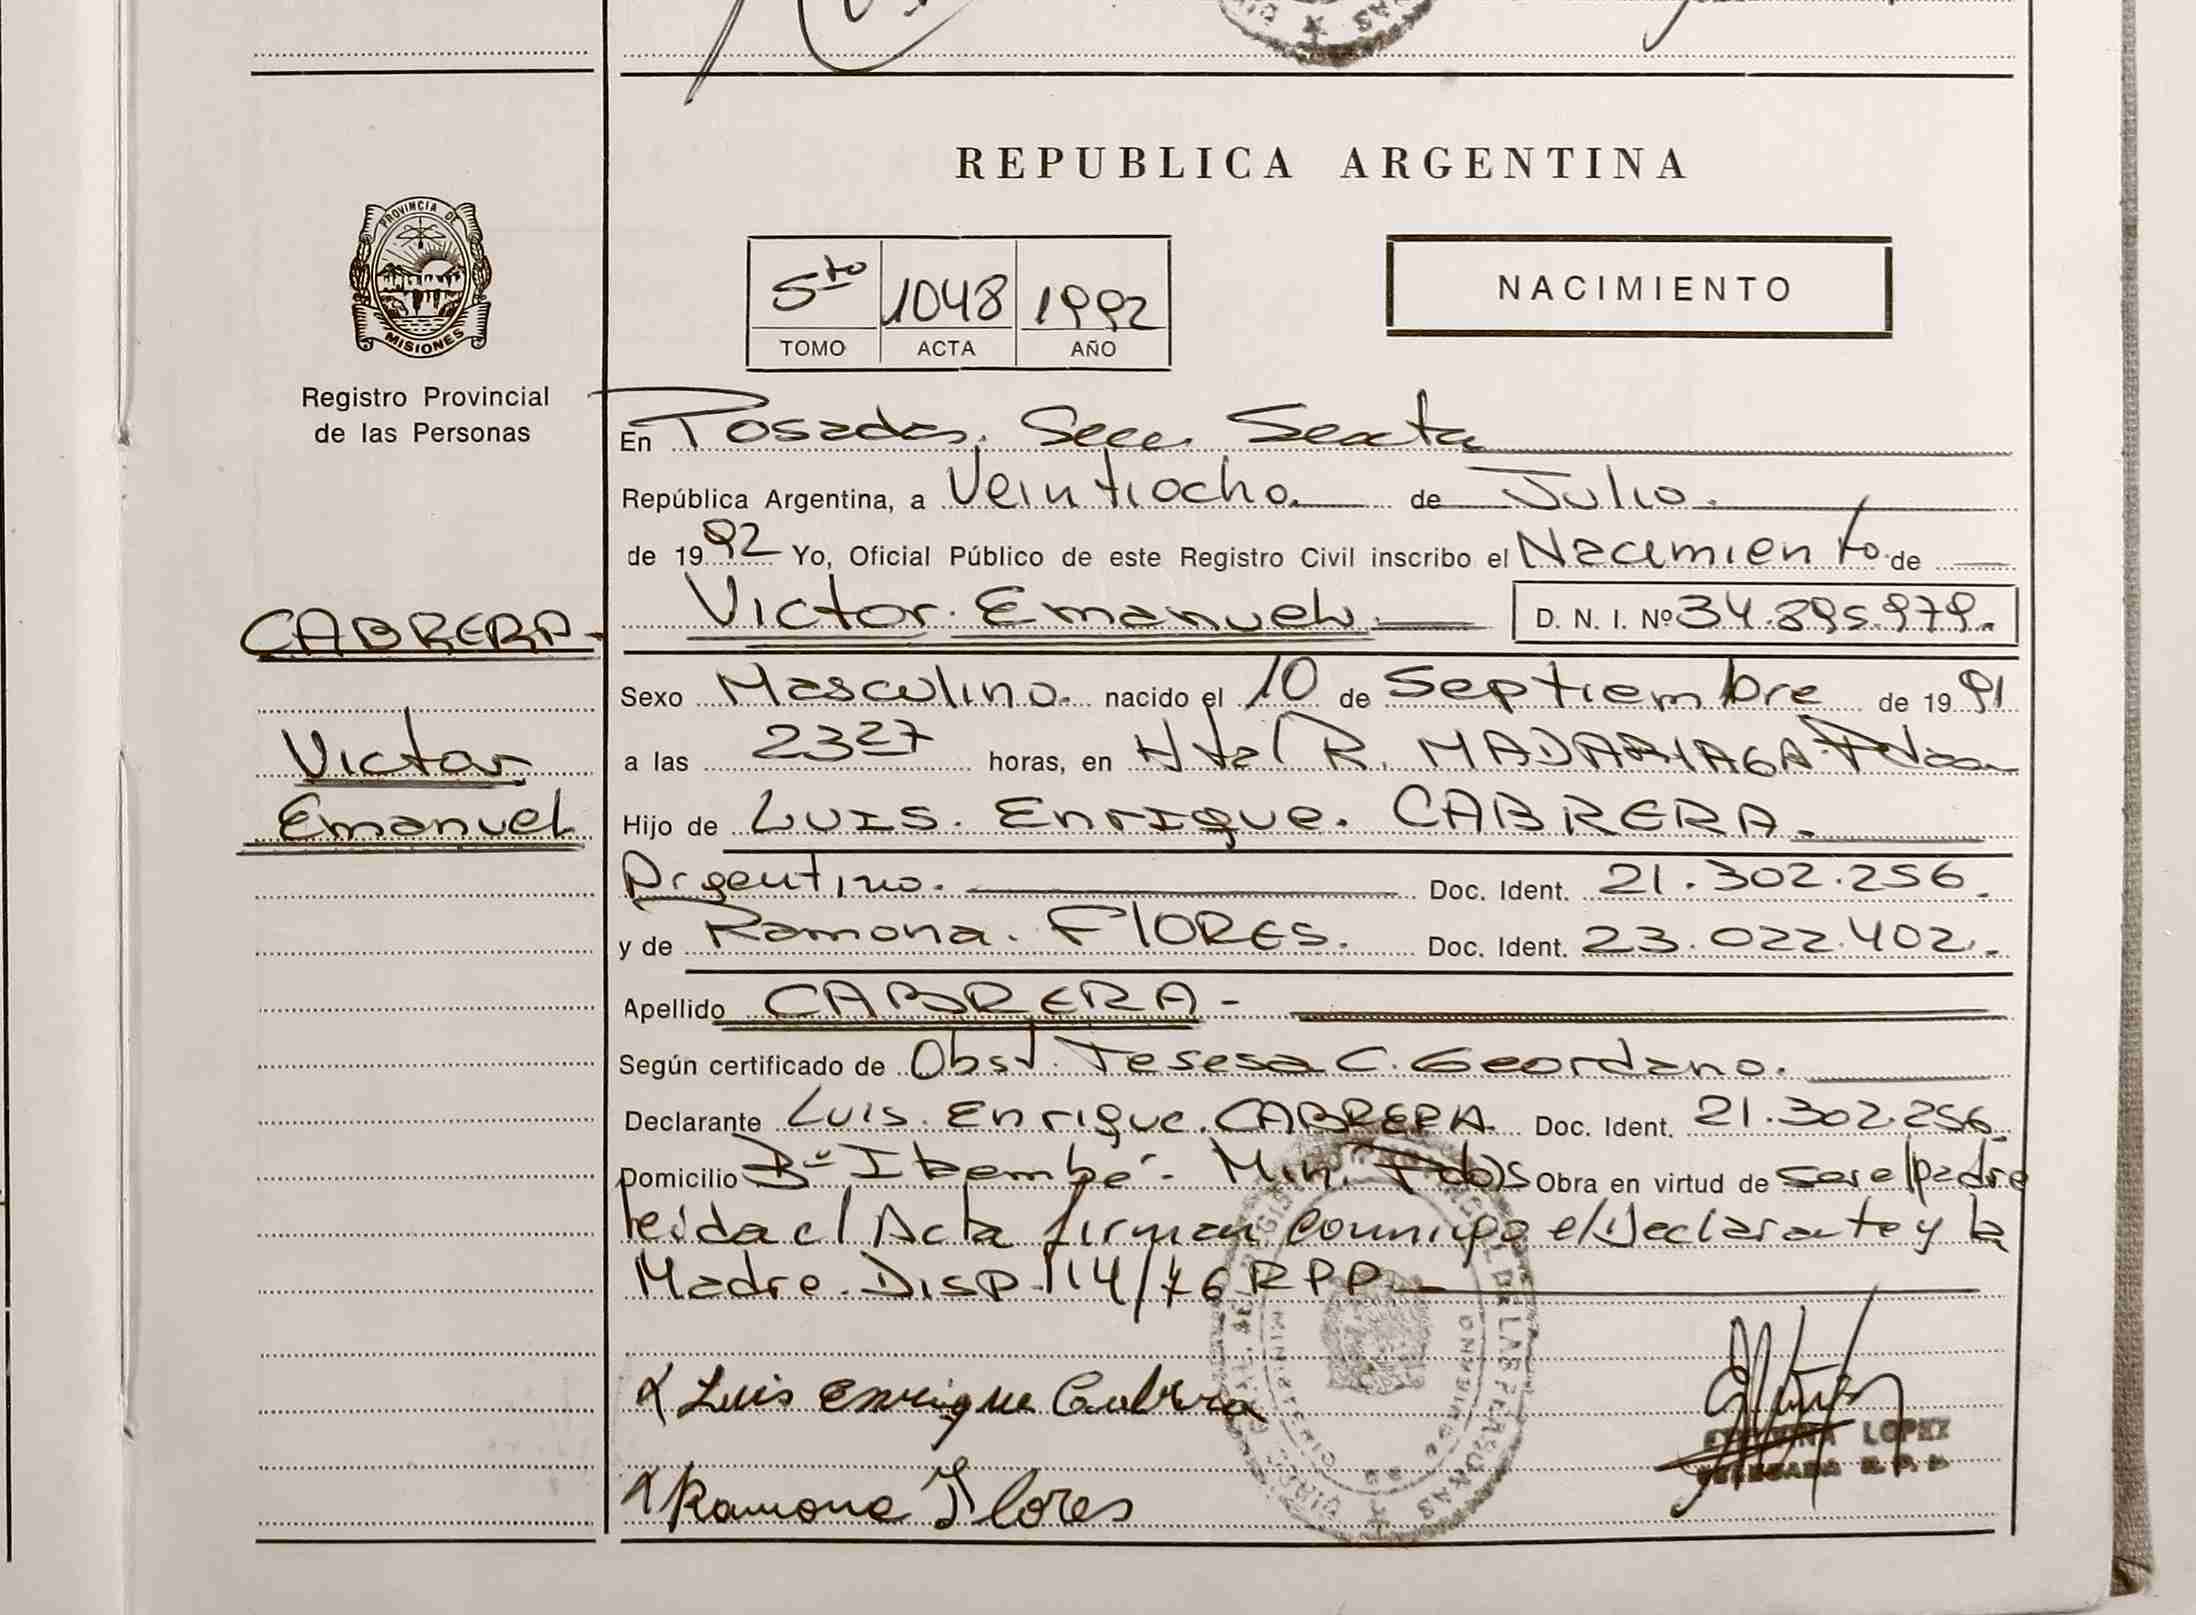 PROVINCIA DE
MISIONES
Registro Provincial
de las Personas
CABRERA-
Victor
Emanuel
REPUBLICA ARGENTINA
5to 1048 1992
TOMO ACTA AÑO
NACIMIENTO
En Posadas. Secc. Sexta
República Argentina, a Veintiocho. de Julio.
de 1992 Yo, Oficial Público de este Registro Civil inscribo el Nacimiento de
Victor. Emanuel. D. N. I. Nº 34.895.979.
Sexo Masculino. nacido el 10 de Septiembre de 1991
a las 2327 horas, en Htal R. MADARIAGA
Hijo de Luis. Enrique. CABRERA.
Argentino. Doc. Ident. 21.302.256.
y de Ramona. FlORES. Doc. Ident. 23.022.402.
Apellido CABRERA-
Según certificado de Obst. Tesesa C. Geordano.
Declarante Luis. Enrique. CABRERA. Doc. Ident. 21.302.256.
Domicilio Bº Itaembé. Min. Pdas Obra en virtud de ser el padre
leida el Acta firman conmigo el Declarante y la
Madre. Disp. 114/76 RPP
Luis Enrique Cabrera
LOPEZ
Ramona Flores